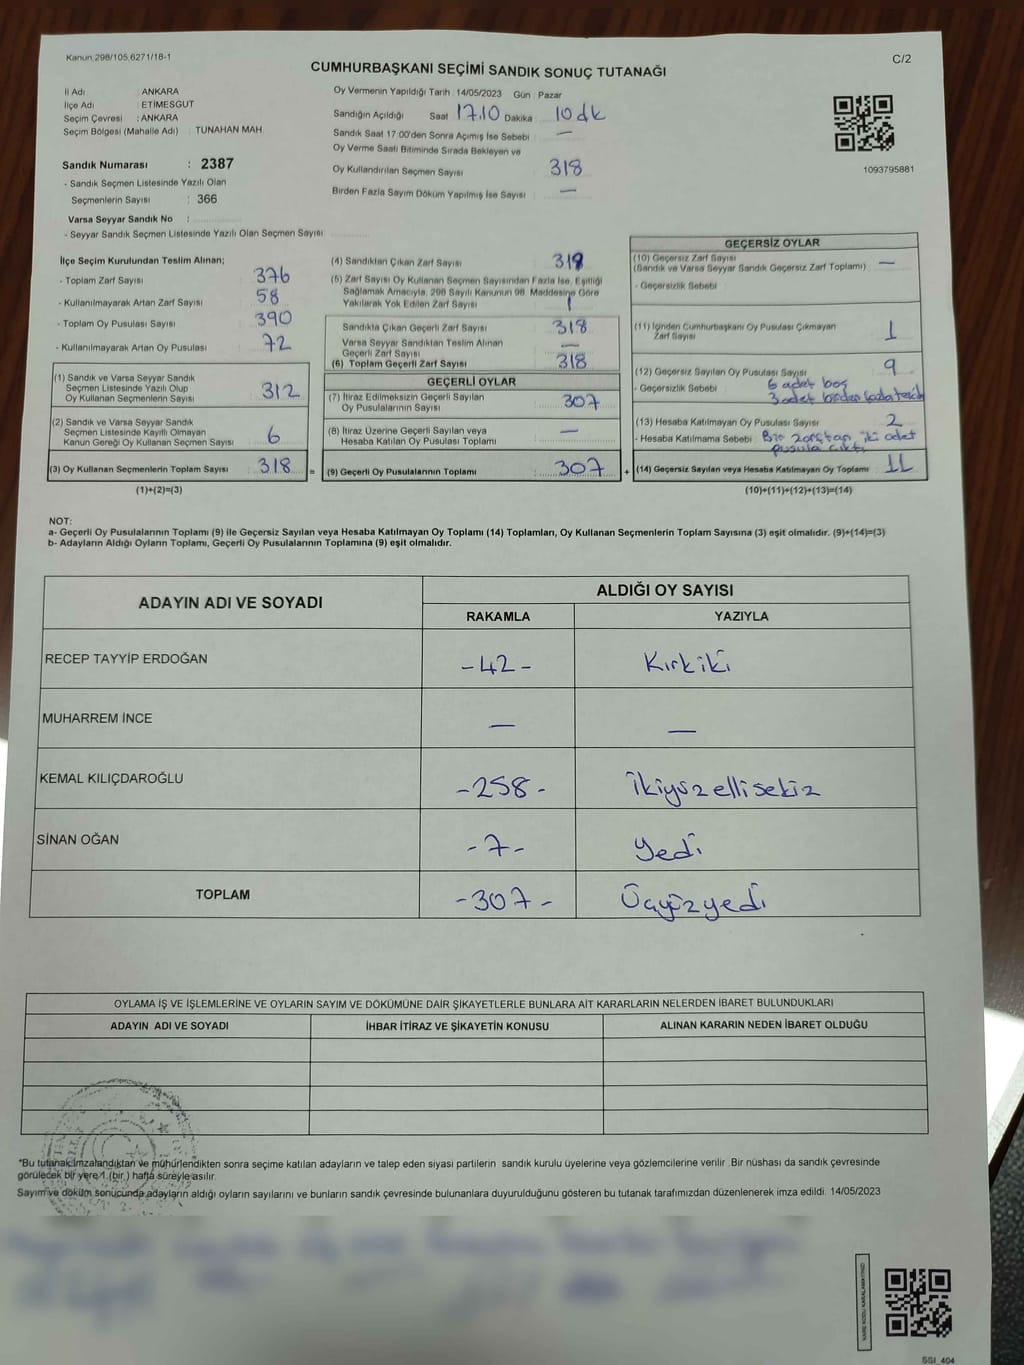 Kanun;298/105,6271/18-1
C/2
CUMHURBAŞKANI SEÇİMİ SANDIK SONUÇ TUTANAĞI
İl Adı ANKARA
İlçe Adı : ETİMESGUT
Seçim Çevresi : ANKARA
Seçim Bölgesi (Mahalle Adı) : TUNAHAN MAH.
Sandık Numarası : 2387
- Sandık Seçmen Listesinde Yazılı Olan
Seçmenlerin Sayısı : 366
Varsa Seyyar Sandık No :
- Seyyar Sandık Seçmen Listesinde Yazılı Olan Seçmen Sayısı
Oy Vermenin Yapıldığı Tarih : 14/05/2023 Gün : Pazar
Sandığın Açıldığı Saat 17.10 Dakika 10 dk
Sandık Saat 17:00'den Sonra Açılmış İse Sebebi —
Oy Verme Saati Bitiminde Sırada Bekleyen ve
Oy Kullandırılan Seçmen Sayısı 318
Birden Fazla Sayım Döküm Yapılmış İse Sayısı —
1093795881
İlçe Seçim Kurulundan Teslim Alınan;
- Toplam Zarf Sayısı 376
- Kullanılmayarak Artan Zarf Sayısı 58
- Toplam Oy Pusulası Sayısı 390
- Kullanılmayarak Artan Oy Pusulası 72
(1) Sandık ve Varsa Seyyar Sandık
Seçmen Listesinde Yazılı Olup
Oy Kullanan Seçmenlerin Sayısı 312
(2) Sandık ve Varsa Seyyar Sandık
Seçmen Listesinde Kayıtlı Olmayan
Kanun Gereği Oy Kullanan Seçmen Sayısı 6
(3) Oy Kullanan Seçmenlerin Toplam Sayısı 318 =
(1)+(2)=(3)
(4) Sandıktan Çıkan Zarf Sayısı 319
(5) Zarf Sayısı Oy Kullanan Seçmen Sayısından Fazla İse, Eşitliği
Sağlamak Amacıyla, 298 Sayılı Kanunun 98. Maddesine Göre
Yakılarak Yok Edilen Zarf Sayısı 1
Sandıkta Çıkan Geçerli Zarf Sayısı 318
Varsa Seyyar Sandıktan Teslim Alınan
Geçerli Zarf Sayısı —
(6) Toplam Geçerli Zarf Sayısı 318
GEÇERLİ OYLAR
(7) İtiraz Edilmeksizin Geçerli Sayılan
Oy Pusulalarının Sayısı 307
(8) İtiraz Üzerine Geçerli Sayılan veya
Hesaba Katılan Oy Pusulası Toplamı —
(9) Geçerli Oy Pusulalarının Toplamı 307 +
GEÇERSİZ OYLAR
(10) Geçersiz Zarf Sayısı
(Sandık ve Varsa Seyyar Sandık Geçersiz Zarf Toplamı) —
- Geçersizlik Sebebi
(11) İçinden Cumhurbaşkanı Oy Pusulası Çıkmayan
Zarf Sayısı 1
(12) Geçersiz Sayılan Oy Pusulası Sayısı 9
- Geçersizlik Sebebi 6 adet boş
3 adet birden fazla tercih
(13) Hesaba Katılmayan Oy Pusulası Sayısı 2
- Hesaba Katılmama Sebebi Bir zarftan iki adet
pusula çıktı
(14) Geçersiz Sayılan veya Hesaba Katılmayan Oy Toplamı 11
(10)+(11)+(12)+(13)=(14)
NOT:
a- Geçerli Oy Pusulalarının Toplamı (9) ile Geçersiz Sayılan veya Hesaba Katılmayan Oy Toplamı (14) Toplamları, Oy Kullanan Seçmenlerin Toplam Sayısına (3) eşit olmalıdır. (9)+(14)=(3)
b- Adayların Aldığı Oyların Toplamı, Geçerli Oy Pusulalarının Toplamına (9) eşit olmalıdır.
ADAYIN ADI VE SOYADI
ALDIĞI OY SAYISI
RAKAMLA YAZIYLA
RECEP TAYYİP ERDOĞAN -42- Kırkiki
MUHARREM İNCE — —
KEMAL KILIÇDAROĞLU -258- İkiyüzellisekiz
SİNAN OĞAN -7- Yedi
TOPLAM -307- Üçyüzyedi
OYLAMA İŞ VE İŞLEMLERİNE VE OYLARIN SAYIM VE DÖKÜMÜNE DAİR ŞİKAYETLERLE BUNLARA AİT KARARLARIN NELERDEN İBARET BULUNDUKLARI
ADAYIN ADI VE SOYADI İHBAR İTİRAZ VE ŞİKAYETİN KONUSU ALINAN KARARIN NEDEN İBARET OLDUĞU
*Bu tutanak imzalandıktan ve mühürlendikten sonra seçime katılan adayların ve talep eden siyasi partilerin sandık kurulu üyelerine veya gözlemcilerine verilir .Bir nüshası da sandık çevresinde
görülecek bir yere 1 (bir ) hafta süreyle asılır.
Sayım ve döküm sonucunda adayların aldığı oyların sayılarını ve bunların sandık çevresinde bulunanlara duyurulduğunu gösteren bu tutanak tarafımızdan düzenlenerek imza edildi. 14/05/2023
KARE KODU KARALAMAYINIZ!
SSI_404